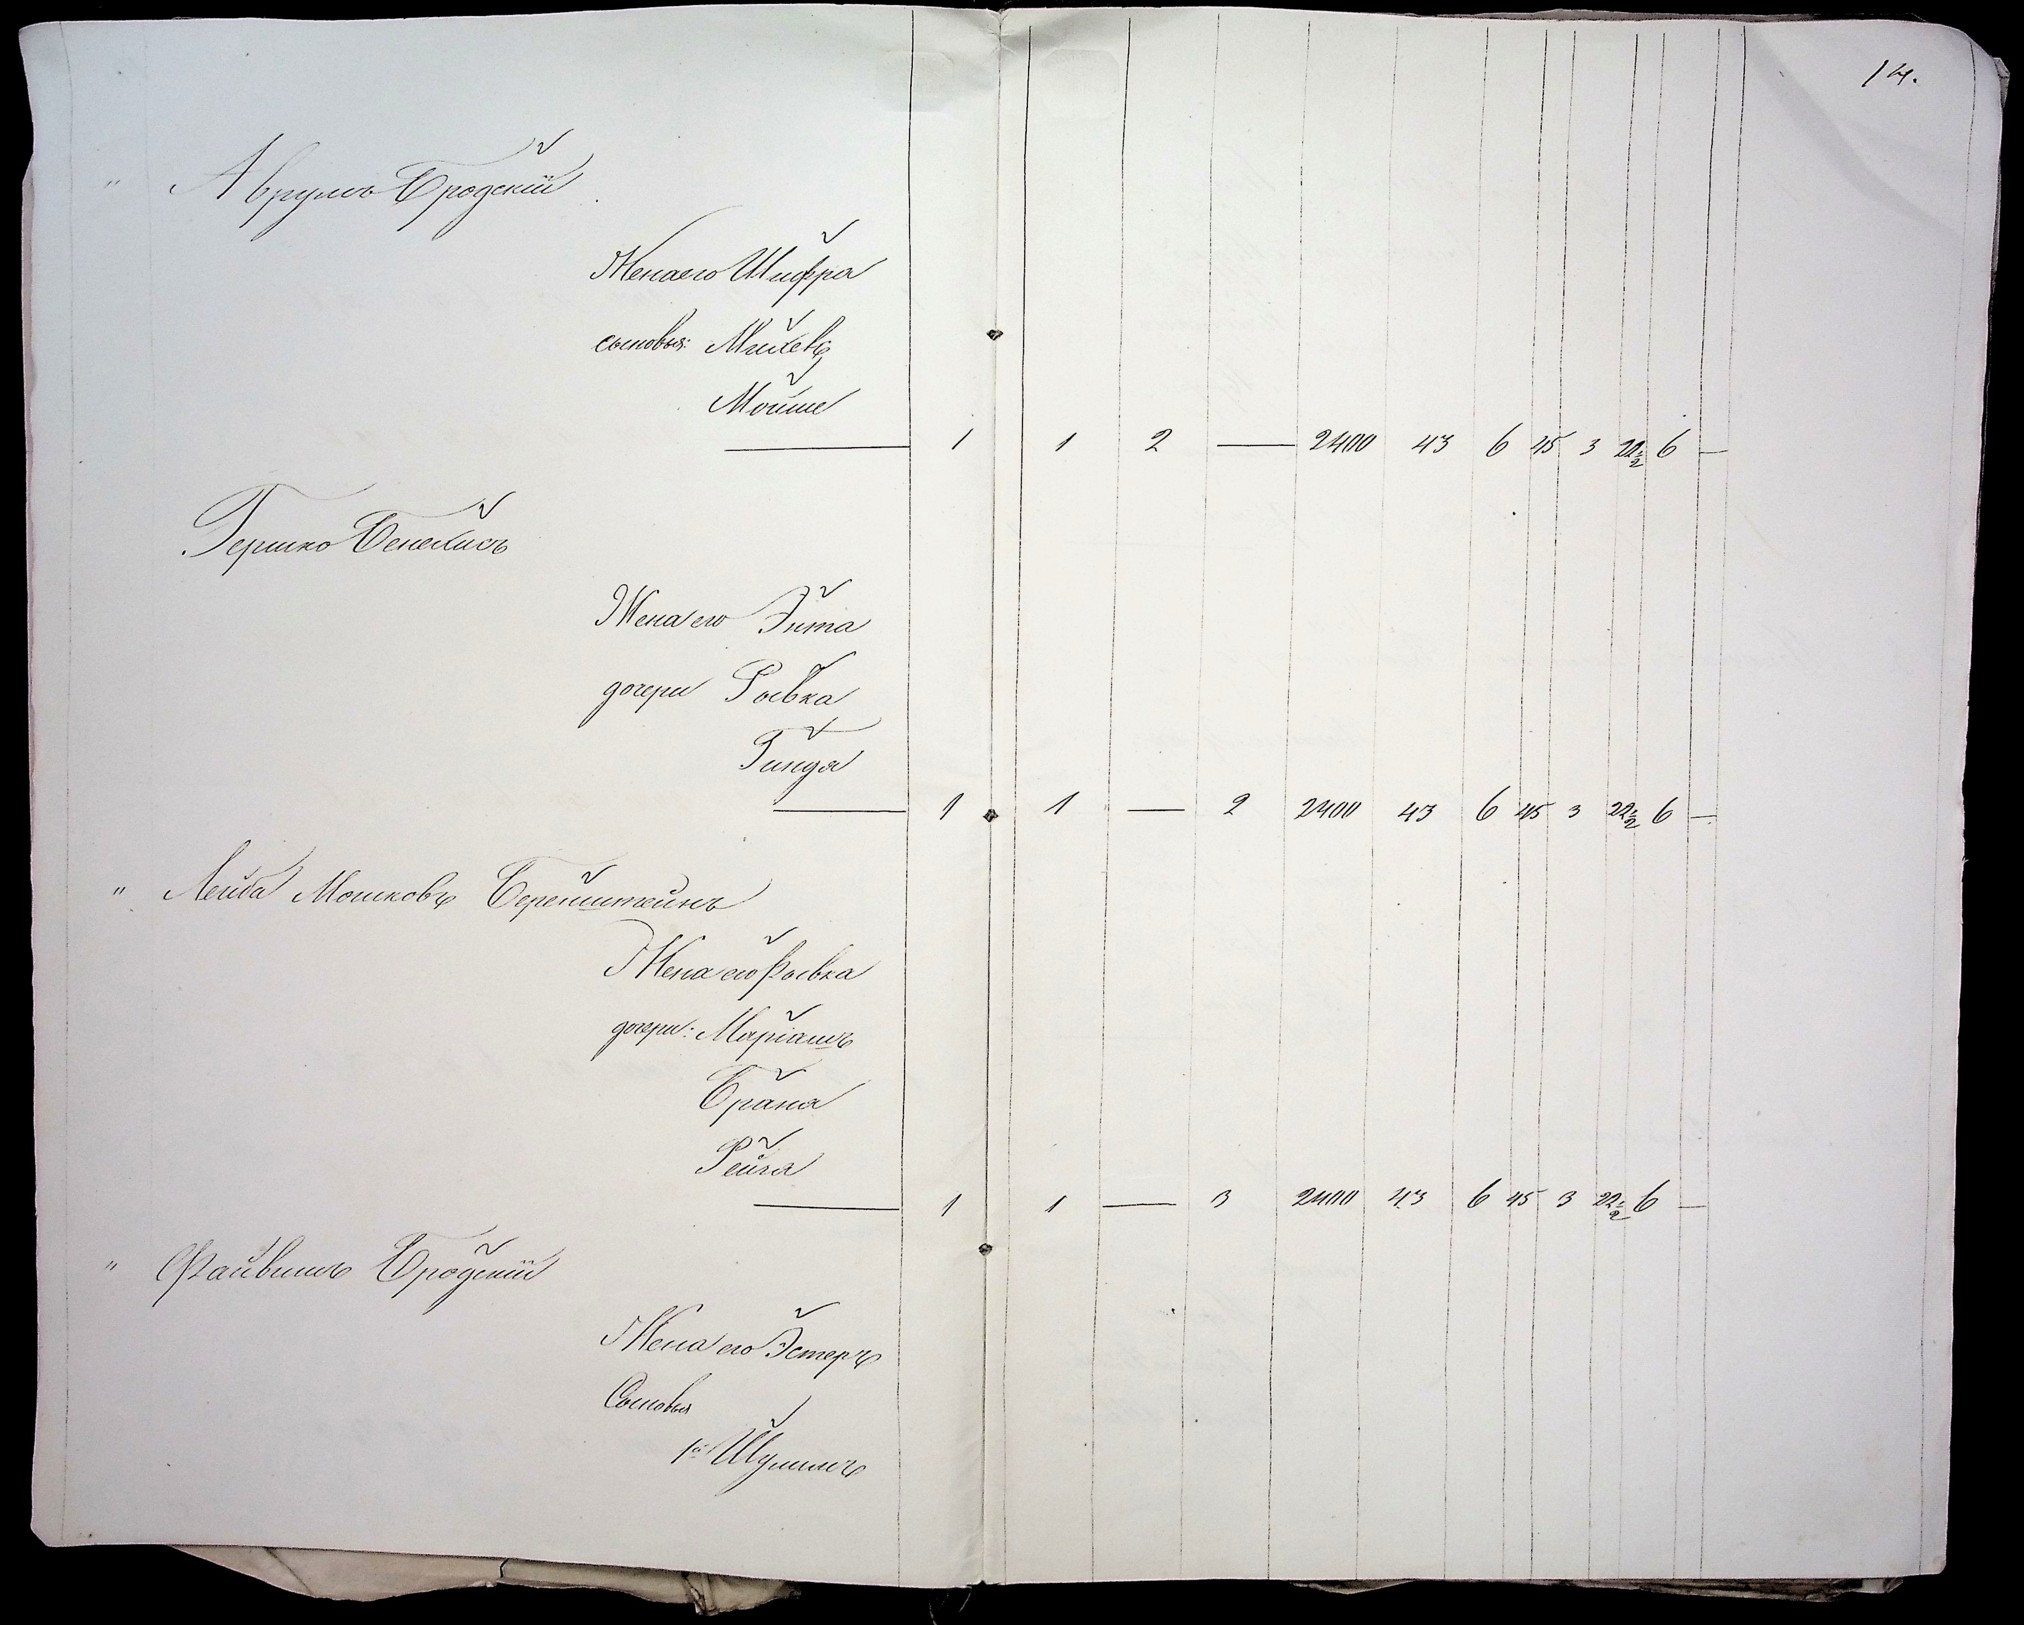 14.
" Аврумъ Бродскій
Жена его Шифра
сыновья: Михель
Мойше
1 1 2 — 2400 43 6 45 3 22½ 6 —
Гершко
Жена его Эита
дочери Рывка
Гинда
1 1 — 2 2400 43 6 45 3 22½ 6 —
" Лейба Мошковъ Беренштейнъ
Жена его Рывка
дочери: Маріамъ
Брана
Рейза
1 1 — 3 2400 43 6 45 3 22½ 6 —
" Файвишъ Бродскій
Жена его Эстеръ
Сыновья
1й Шулимъ